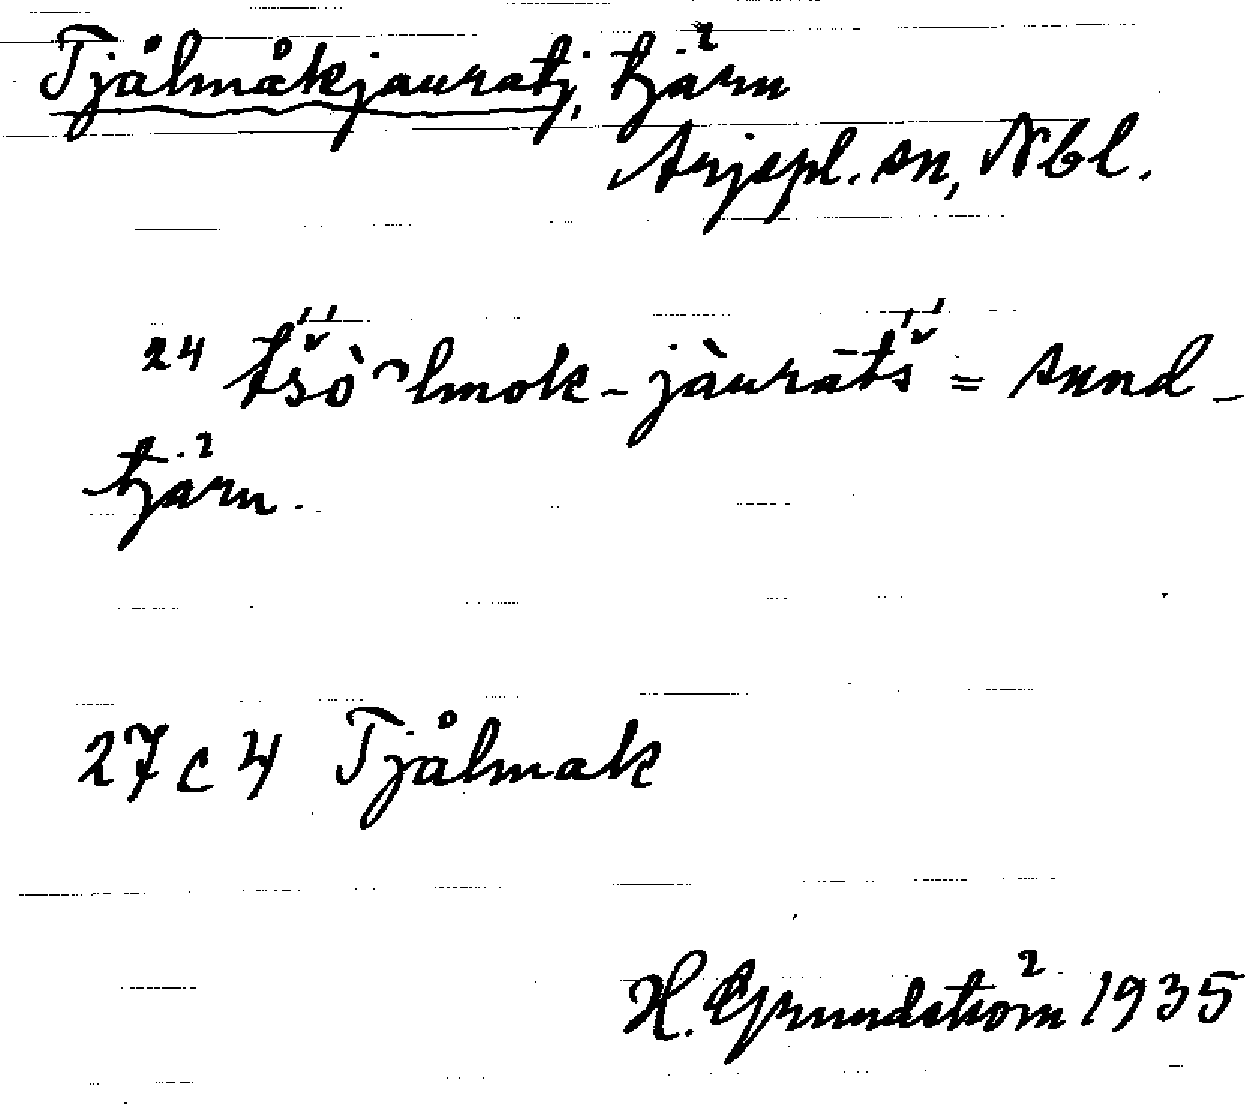 Tjålmåkjauratj, tjärn
Arjepl. sn, Nbl.
24 tš̀òˀlmok-jàurātš = sund-
tjärn.
27 c 4 Tjålmak
H. Grundström 1935